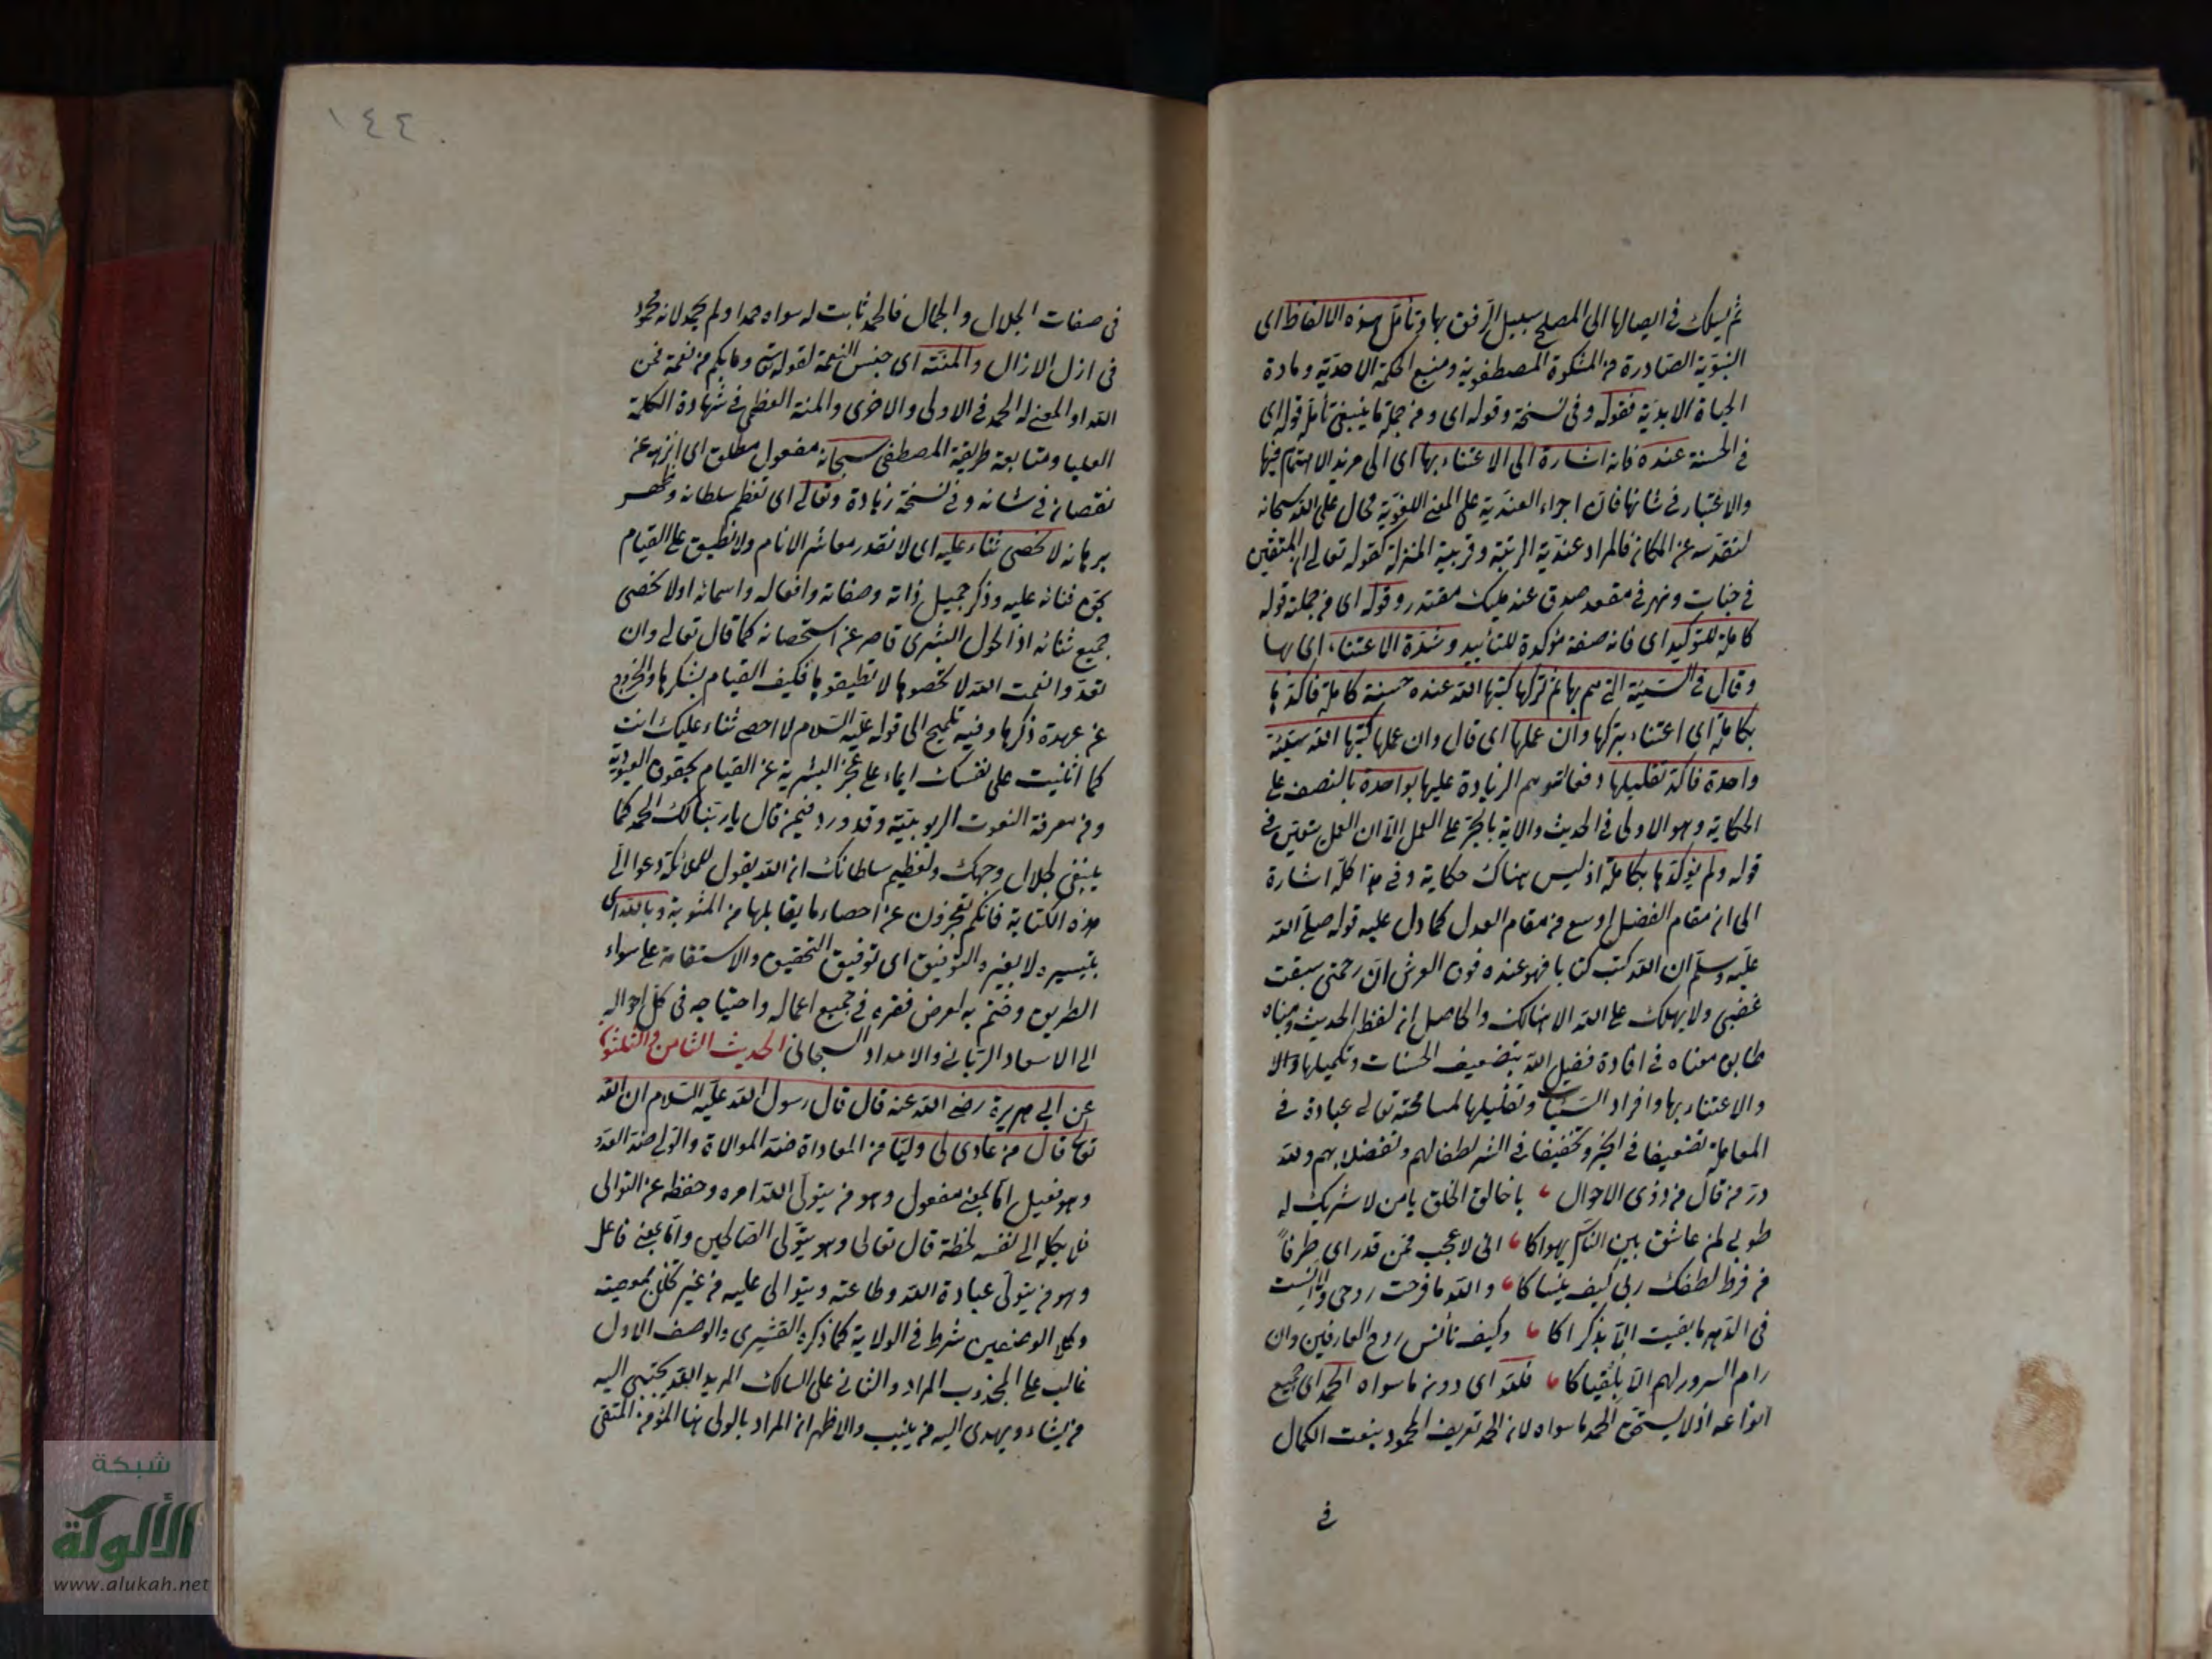 ثم يسلك في ايصالها الى المصلح سبيل الرفق بها وتأمل هذه الالفاظ اى
النبوية الصادرة من المشكوة المصطفوية ومنبع الحكمة الاحدية ومادة
الحياة الابدية فقوله وفى نسخة وقوله اى ومن جملة ما ينبغى تأمله قوله اى
في الحسنة عنده فانه اشارة الى الاعتناء بها اى الى مزيد الاهتمام فيها
والاعتبار في شانها فان اجراء العندية على المعنى اللغوية محال على الله سبحانه
لتقدسه عن المكان فالمراد عندية الرتبة وقربية المنزلة كقوله تعالى ان المتقين
في جنات ونهر في مقعد صدق عند مليك مقتدر وقوله اى من جملة قوله
كاملة للتوكيد اى فانه صفة مؤكدة للتأييد وشدة الاعتناء اى بها
وقال في السيئة التي هم بها ثم تركها كتبها الله عنده حسنة كاملة فاكدها
بكاملة اى اعتناء بتركها وان عملها اى قال وان عملها كتبها الله سيئة
واحدة فاكد تقليلها دفعا لتوهم الزيادة عليها بواحدة بالنصف على
الحكاية وهو الاولى في الحديث والاية بالجر على العمل الا ان العمل يتعين في
قوله ولم يؤكدها بكاملة اذ ليس هناك حكاية وفى هذا كله اشارة
الى ان مقام الفضل اوسع من مقام العدل كما دل عليه قوله صلى الله
عليه وسلم ان الله كتب كتابا فهو عنده فوق العرش ان رحمتى سبقت
غضبى ولا يهلك على الله الا هالك والحاصل ان لفظ الحديث ومبناه
طابق معناه في افادة فضل الله بتضعيف الحسنات وتكميلها والا
والاعتناء بها وافراد السيئات وتقليلها لمسامحته تعالى عباده في
المعاملة تضعيفا في الخير وتخفيفا في الشر لطفا لهم وتفضلا بهم ولله
در من قال من ذوى الاحوال يا خالق الخلق يا من لا شريك له
طوبى لمن عاش بين الناس يهواكا انى لاعجب ممن قد راى طرفا
من فرط لطفك ربى كيف ينساكا والله ما فرحت روحى ولا انست
فى الدهر ما بقيت الا بذكراكا وكيف تأنس روح العارفين وان
رام السرور لهم الا بلقياكا فلله اى دون ما سواه الحمد اى جميع
انواعه اذ لا يستحق الحمد ما سواه لان الحمد تعريف المحمود بنعت الكمال
في
١٤٤
فى صفات الجلال والجمال فالحمد ثابت له سواه حمدا ولم يحمد لانه محمود
فى ازل الازال والمنة اى جنس النعمة لقوله تعالى وما بكم من نعمة فمن
الله او المعنى له الحمد في الاولى والاخرى والمنة العظمى في شهادة الكلمة
العليا ومتابعة طريقة المصطفى سبحانه مفعول مطلق اى انزهه عن
نقصان في شانه وفى نسخة زيادة وتعالى اى تعظم سلطانه وظهر
برهانه لا نحصى ثناء عليه اى لا نقدر معاشر الانام ولا نطيق على القيام
بحق ثنائه عليه وذكر جميل ذاته وصفاته وافعاله واسمائه او لا نحصى
جميع ثنائه اذ الحول البشرى قاصر عن استحصائه كما قال تعالى وان
تعدوا نعمت الله لا تحصوها لا تطيقوها فكيف القيام بشكرها والخروج
عن عهدة ذكرها وفيه تلميح الى قوله عليه السلام لا احصى ثناء عليك انت
كما اثنيت على نفسك ايماء على عجز البشرية عن القيام بحقوق العبودية
ومن معرفة النعوت الربوبيتية وقد ورد فيمن قال يا ربنا لك الحمد كما
ينبغى لجلال وجهك ولعظيم سلطانك ان الله يقول للملائكة دعوا الى
هذه الكتابة فانكم تعجزون عن احصاء ما يقابلها من المثوبة وبالله اى
بتيسيره لا بغيره التوفيق اى توفيق التحقيق والاستقامة على سواء
الطريق وختم به لعرض فقره في جميع اعماله واحتياجه فى كل احواله
الى الاسعاد الربانى والامداد السبحانى الحديث الثامن والثلثون
عن ابى هريرة رضى الله عنه قال قال رسول الله عليه السلام ان الله
تعالى قال من عادى لى وليا من المعاداة ضد الموالاة والولى ضد العدو
وهو فعيل اما بمعنى مفعول وهو من يتولى الله امره وحفظه عن التوالى
فلا يكله الى نفسه لحظة قال تعالى وهو يتولى الصالحين واما بمعنى فاعل
وهو من يتولى عبادة الله وطاعته ويتوالى عليه من غير تخلل بمعصية
وكلا الوصفين شرط في الولاية كما ذكره القشيرى والوصف الاول
غالب على المجذوب المراد والثانى على السالك المريد الله يجتبى اليه
من يشاء ويهدى اليه من ينيب والاظهر ان المراد بالولى هنا المؤمن المتقى
شبكة
الألوكة
www.alukah.net